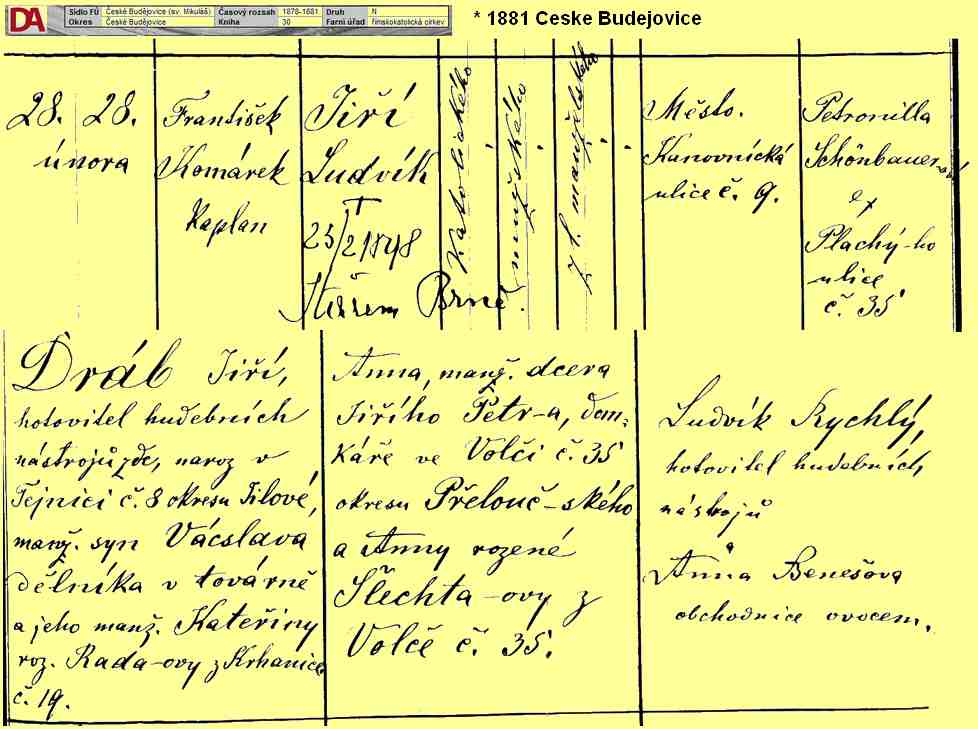 DA
Sídlo FÚ České Budějovice (sv. Mikuláš) Časový rozsah 1878-1881 Druh N
Okres České Budějovice Kniha 30 Farní úřad římskokatolická církev
* 1881 Ceske Budejovice
28. 28.
února
František
Komárek
Kaplan
Jiří
Ludvík
Brně.
Katolického
mužského
manželské
Město.
Kanovnická
ulice č. 9.
Petronilla
Schönbauer-ová
ex
Plachý-ho
ulice
č. 35
Dráb Jiří,
hotovitel hudebních
nástrojů zde, naroz v
Tejnici č. 8 okresu Jilové,
manž. syn Vácslava
dělníka v továrně
a jeho manž. Kateřiny
roz. Rada-ovy z Krhanice
č. 19.
Anna, manž. dcera
Jiřího Petr-a, dom-
káře ve Volči č. 35
okresu Přelouč-ského
a Anny rozené
Šlechta-ovy z
Volče č. 35.
Ludvík Rychlý,
hotovitel hudebních
nástrojů
Anna Benešova
obchodnice ovocem.